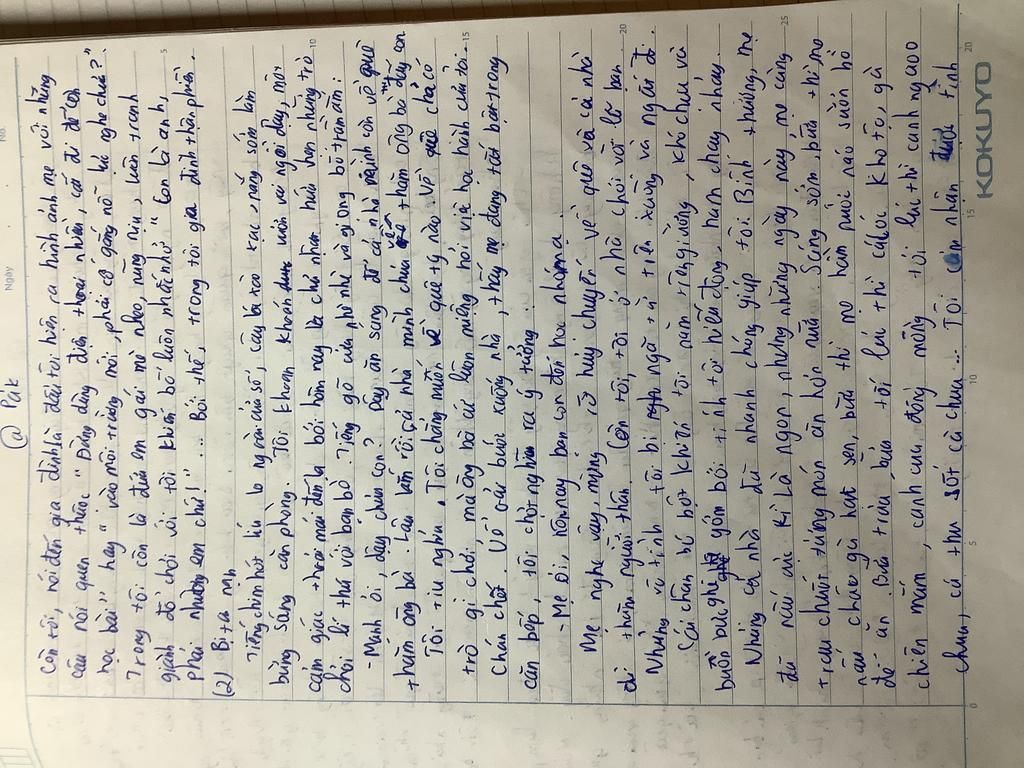 No.
Ngày
@ Pak
Còn tôi, nói đến gia đình là đầu tôi hiện ra hình ảnh mẹ với những
câu nói quen thuộc "Đừng dùng điện thoại nhiều, cất đi để còn
học bài" hay " vào môi trường mới, phải cố gắng nỗ lực nghe chưa?"
Trong tôi còn là đứa em gái mè nheo, nũng nịu, luôn tranh
giành đồ chơi với tôi khiến bố luôn nhắc nhở " Con là anh,
phải nhường em chứ!"... Bởi thế, trong tôi gia đình thân
(2)
Tiếng chim hót líu lo ngoài cửa sổ, cây lá rào xạc, nắng sớm làm
bừng sáng căn phòng. Tôi khoan khoái vươn vai ngồi dậy, một
cảm giác thoải mái đến lạ bởi hôm nay là chủ nhật, hứa hẹn những trò
chơi lí thú với bạn bè. Tiếng gõ cửa nhè nhẹ và giọng bố trầm ấm:
- Mạnh ơi, dậy chưa con? Dậy ăn sáng để cả nhà mình còn về quê
thăm ông bà. Lâu lắm rồi cả nhà mình chưa về thăm ông bà đấy con.
Tôi tiu nghỉu. Tôi chẳng muốn về quê tý nào. Về quê chả có
trò gì chơi mà ông bà cứ luôn miệng hỏi việc học hành của tôi.
Chán chết. Uể oải bước xuống nhà, thấy mẹ đang tất bật trong
căn bếp, tôi chợt nghĩ ra ý tưởng.
- Mẹ ơi, hôm nay bọn con đến học nhóm ạ.
Mẹ nghe vậy, mắng tôi hủy chuyến về quê và cả nhà
đi thăm người thân. Còn tôi, tôi ở nhà chơi với lũ bạn.
Nhưng vô tình tôi bị ngã ở trên xuống và ngất đi.
Cái chân bó bột khiến tôi nằm trên giường, khó chịu và
buồn bực ghê gớm bởi tính tôi hiếu động, ham chạy nhảy.
Nhưng cả nhà đã nhanh chóng giúp tôi Bình thường, mẹ
đã nấu ăn kì là ngon, nhưng những ngày này, mẹ càng
trau chuốt từng món ăn hơn nữa. Sáng sớm, bữa thì mẹ
nấu cháo gà hạt sen, bữa thì mẹ hầm nước náo sườn bò
để ăn. Bữa trưa, bữa tối lúc thì cá lóc kho tộ, gà
chiên mắm, canh cua đồng mồng tơi lúc thì canh ngao
chua, cá thu sốt cà chua... Tôi cảm nhận được tình
KOKUYO
5
10
15
20
25
0
5
10
15
20